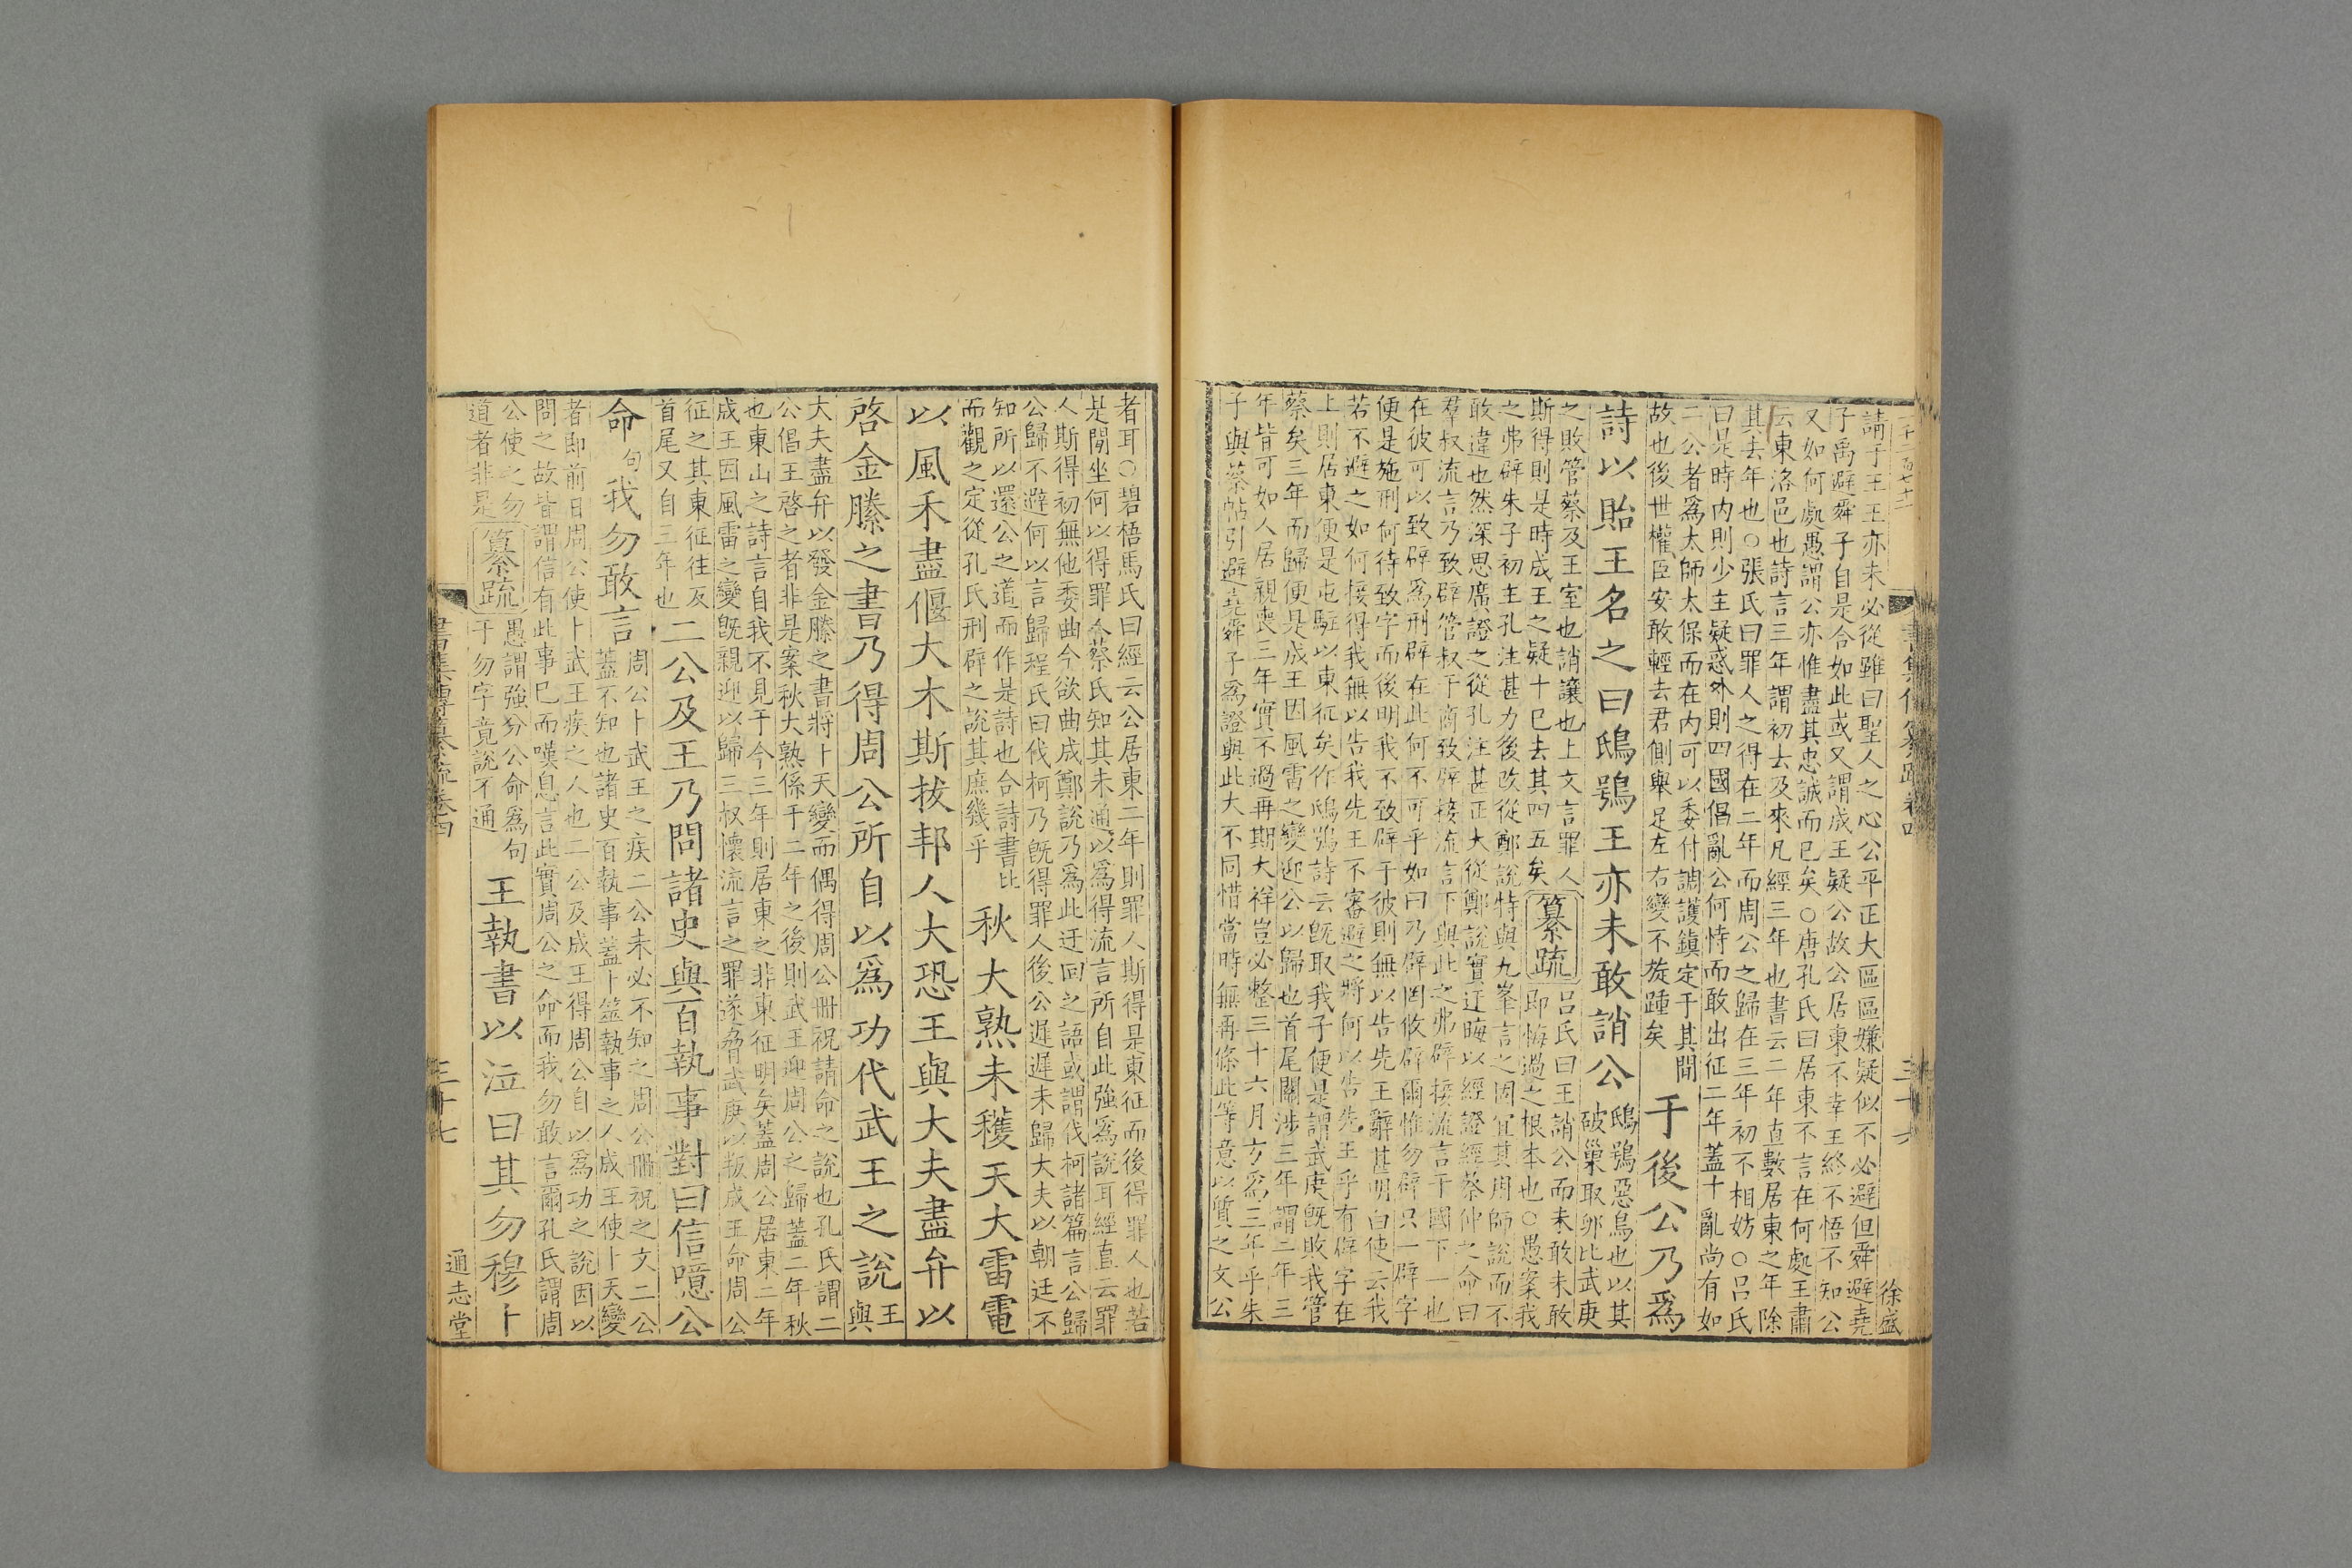 請于王王亦未必從雖曰聖人之心公平正大區區嫌疑似不必避但舜避堯
子禹避舜子自是合如此或又謂成王疑公故公居東不幸王終不悟不知公
又如何處愚謂公亦惟盡其忠誠而已矣○唐孔氏曰居東不言在何處王肅
云東洛邑也詩言三年謂初去及來凡經三年也書云二年直數居東之年除
其去年也○張氏曰罪人之得在二年而周公之歸在三年初不相妨○呂氏
曰是時内則少主疑惑外則四國倡亂公何恃而敢出征二年蓋十亂尚有如
二公者為太師太保而在内可以委付調護鎭定于其間
故也後世權臣安敢輕去君側舉足左右變不旋踵矣
于後公乃爲
詩以貽王名之曰鴟鴞王亦未敢誚公
鴟鴞惡鳥也以其
破巢取卵比武庚
之敗管蔡及王室也誚讓也上文言罪人
斯得則是時成王之疑十已去其四五矣
纂疏
呂氏曰王誚公而未敢未敢
即悔過之根本也○愚案我
之弗辟朱子初主孔注甚力後改從鄭說特與九峯言之因宜其周師說而不
敢違也然深思廣證之從孔注甚正大從鄭說實迂晦以經證經蔡仲之命曰
羣叔流言乃致辟管叔于商致辟接流言下與此之弗辟接流言于國下一也
在彼可以致辟爲刑辟在此何不可乎如曰乃辟罔攸辟爾惟勿辟只一辟字
便是施刑何待致字而後明我不致辟于彼則無以告先王辭甚明白使云我
若不避之如何接得我無以告我先王不審避之將何以告先王乎有辟字在
上則居東便是屯駐以東征矣作鴟鴞詩云旣取我子便是謂武庚旣敗我管
蔡矣三年而歸便是成王因風雷之變迎公以歸也首尾關涉三年謂二年三
年皆可如人居親喪三年實不過再期大祥豈必整三十六月方爲三年乎朱
子與蔡帖引避堯舜子爲證與此大不同惜當時無再條此等意以質之文公
徐盛
者耳○碧梧馬氏曰經云公居東二年則罪人斯得是東征而後得罪人也若
是閒坐何以得罪人蔡氏知其未通以爲得流言所自此強爲說耳經直云罪
人斯得初無他委曲今欲曲成鄭說乃爲此迂回之語或謂伐柯諸篇言公歸
公歸不避何以言歸程氏曰伐柯乃旣得罪人後公遲遲未歸大夫以朝廷不
知所以還公之道而作是詩也合詩書比
而觀之定從孔氏刑辟之說其庶幾乎
秋大熟未穫天大雷電
以風禾盡偃大木斯拔邦人大恐王與大夫盡弁以
啓金縢之書乃得周公所自以爲功代武王之說
王
與
大夫盡弁以發金縢之書將卜天變而偶得周公冊祝請命之說也孔氏謂二
公倡王啓之者非是案秋大熟係于二年之後則武王迎周公之歸蓋二年秋
也東山之詩言自我不見于今三年則居東之非東征明矣蓋周公居東二年
成王因風雷之變旣親迎以歸三叔懷流言之罪遂脅武庚以叛成王命周公
征之其東征往反
首尾又自三年也
二公及王乃問諸史與百執事對曰信噫公
命
句
我勿敢言
周公卜武王之疾二公未必不知之周公冊祝之文二公
蓋不知也諸史百執事蓋卜筮執事之人成王使卜天變
者即前日周公使卜武王疾之人也二公及成王得周公自以爲功之說因以
問之故皆謂信有此事已而嘆息言此實周公之命而我勿敢言爾孔氏謂周
公使之勿
道者非是
纂疏
愚謂強分公命爲句
于勿字竟說不通
王執書以泣曰其勿穆卜
書集傳纂疏卷四
三十七
通志堂